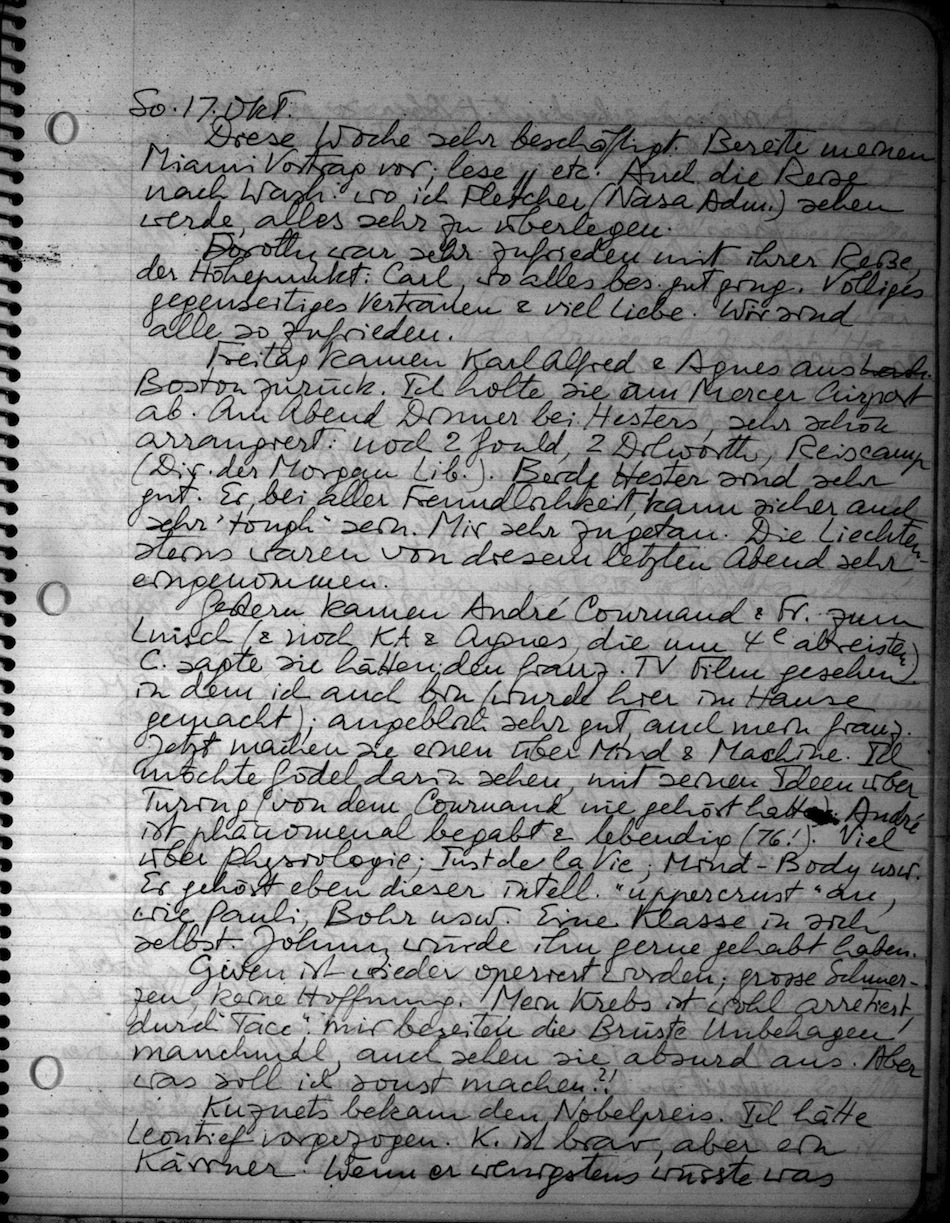 So. 17. Okt.
Diese Woche sehr beschäftigt. Bereite meinen
Miami Vortrag vor; lese " etc. Auch die Reise
nach Wash. wo ich Fletcher (Nasa Adm.) sehen
werde, alles sehr zu überlegen.
Dorothy war sehr zufrieden mit ihrer Reise,
der Höhepunkt: Carl, wo alles bes. gut ging. Völliges
gegenseitiges Vertrauen & viel Liebe. Wir sind
alle so zufrieden.
Freitag kamen Karl Alfred & Agnes aus
Boston zurück. Ich holte sie am Mercer Airport
ab. Am Abend Dinner bei Hesters, sehr schön
arrangiert: noch 2 Gould, 2 Dilworth, Reiscamp
(Dir. der Morgan Lib.). Beide Hester sind sehr
gut. Er, bei aller Freundlichkeit, kann sicher auch
sehr "tough" sein. Mir sehr zugetan. Die Liechten-
steins waren von diesem letzten Abend sehr
eingenommen.
Gestern kamen André Cournand & Fr. zum
Lunch (& noch KA & Agnes, die um 4e abreisten)
C. sagte sie hätten den franz. TV Film gesehen
in dem ich auch bin (wurde hier im Hause
gemacht); angeblich sehr gut, auch mein franz.
Jetzt machen sie einen über Mind & Machine. Ich
möchte Gödel darin sehen, mit seinen Ideen über
Turing (von dem Cournand nie gehört hatte). André
ist phänomenal begabt & lebendig (76!). Viel
über Physiologie; Inst de la Vie; Mind-Body usw.
Er gehört eben dieser intell. "uppercrust" an,
wie Pauli, Bohr usw. Eine Klasse in sich
selbst. Johnny würde ihn gerne gehabt haben.
Given ist wieder operiert worden; grosse Schmer-
zen, keine Hoffnung. Mein Krebs ist wohl arretiert,
durch "Tace". Mir bereiten die Brüste Unbehagen
manchmal, auch sehen sie absurd aus. Aber
was soll ich sonst machen?!
Kuznets bekam den Nobelpreis. Ich hätte
Leontief vorgezogen. K. ist brav, aber ein
Kärrner. Wenn er wenigstens wüsste was